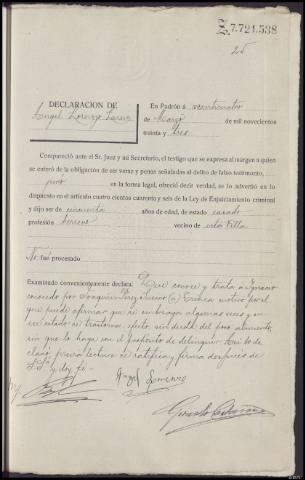 Z.7.721.538
25
DECLARACION DE
Angel Lorenzo
En Padrón á veinticuatro
de Marzo de mil novecientos
treinta y tres
Compareció ante el Sr. Juez y mi Secretario, el testigo que se expresa al margen a quien
se enteró de la obligación de ser veraz y penas señaladas al delito de falso testimonio,
juró en la forma legal, ofreció decir verdad, se le advertió en lo
dispuesto en el artículo cuatro cientos cuarenta y seis de la Ley de Enjuiciamiento criminal
y dijo ser de cincuenta años de edad, de estado casado
profesión sereno vecino de esta Villa
No fue procesado
Examinado convenientemente declara: Que conoce y trata a Ignacio
conocido por Joaquin Perez (a) Trinca motivo por el
que puede afirmar que se embriaga algunas veces y en
ese estado se trastorna, efecto sin duda del poco alimento,
sin que lo haga con el propósito de delinquir. Así lo de-
claró, previa lectura se ratifica y firma después de
S.Sª y doy fé.-
Angel Lorenzo
Gerardo